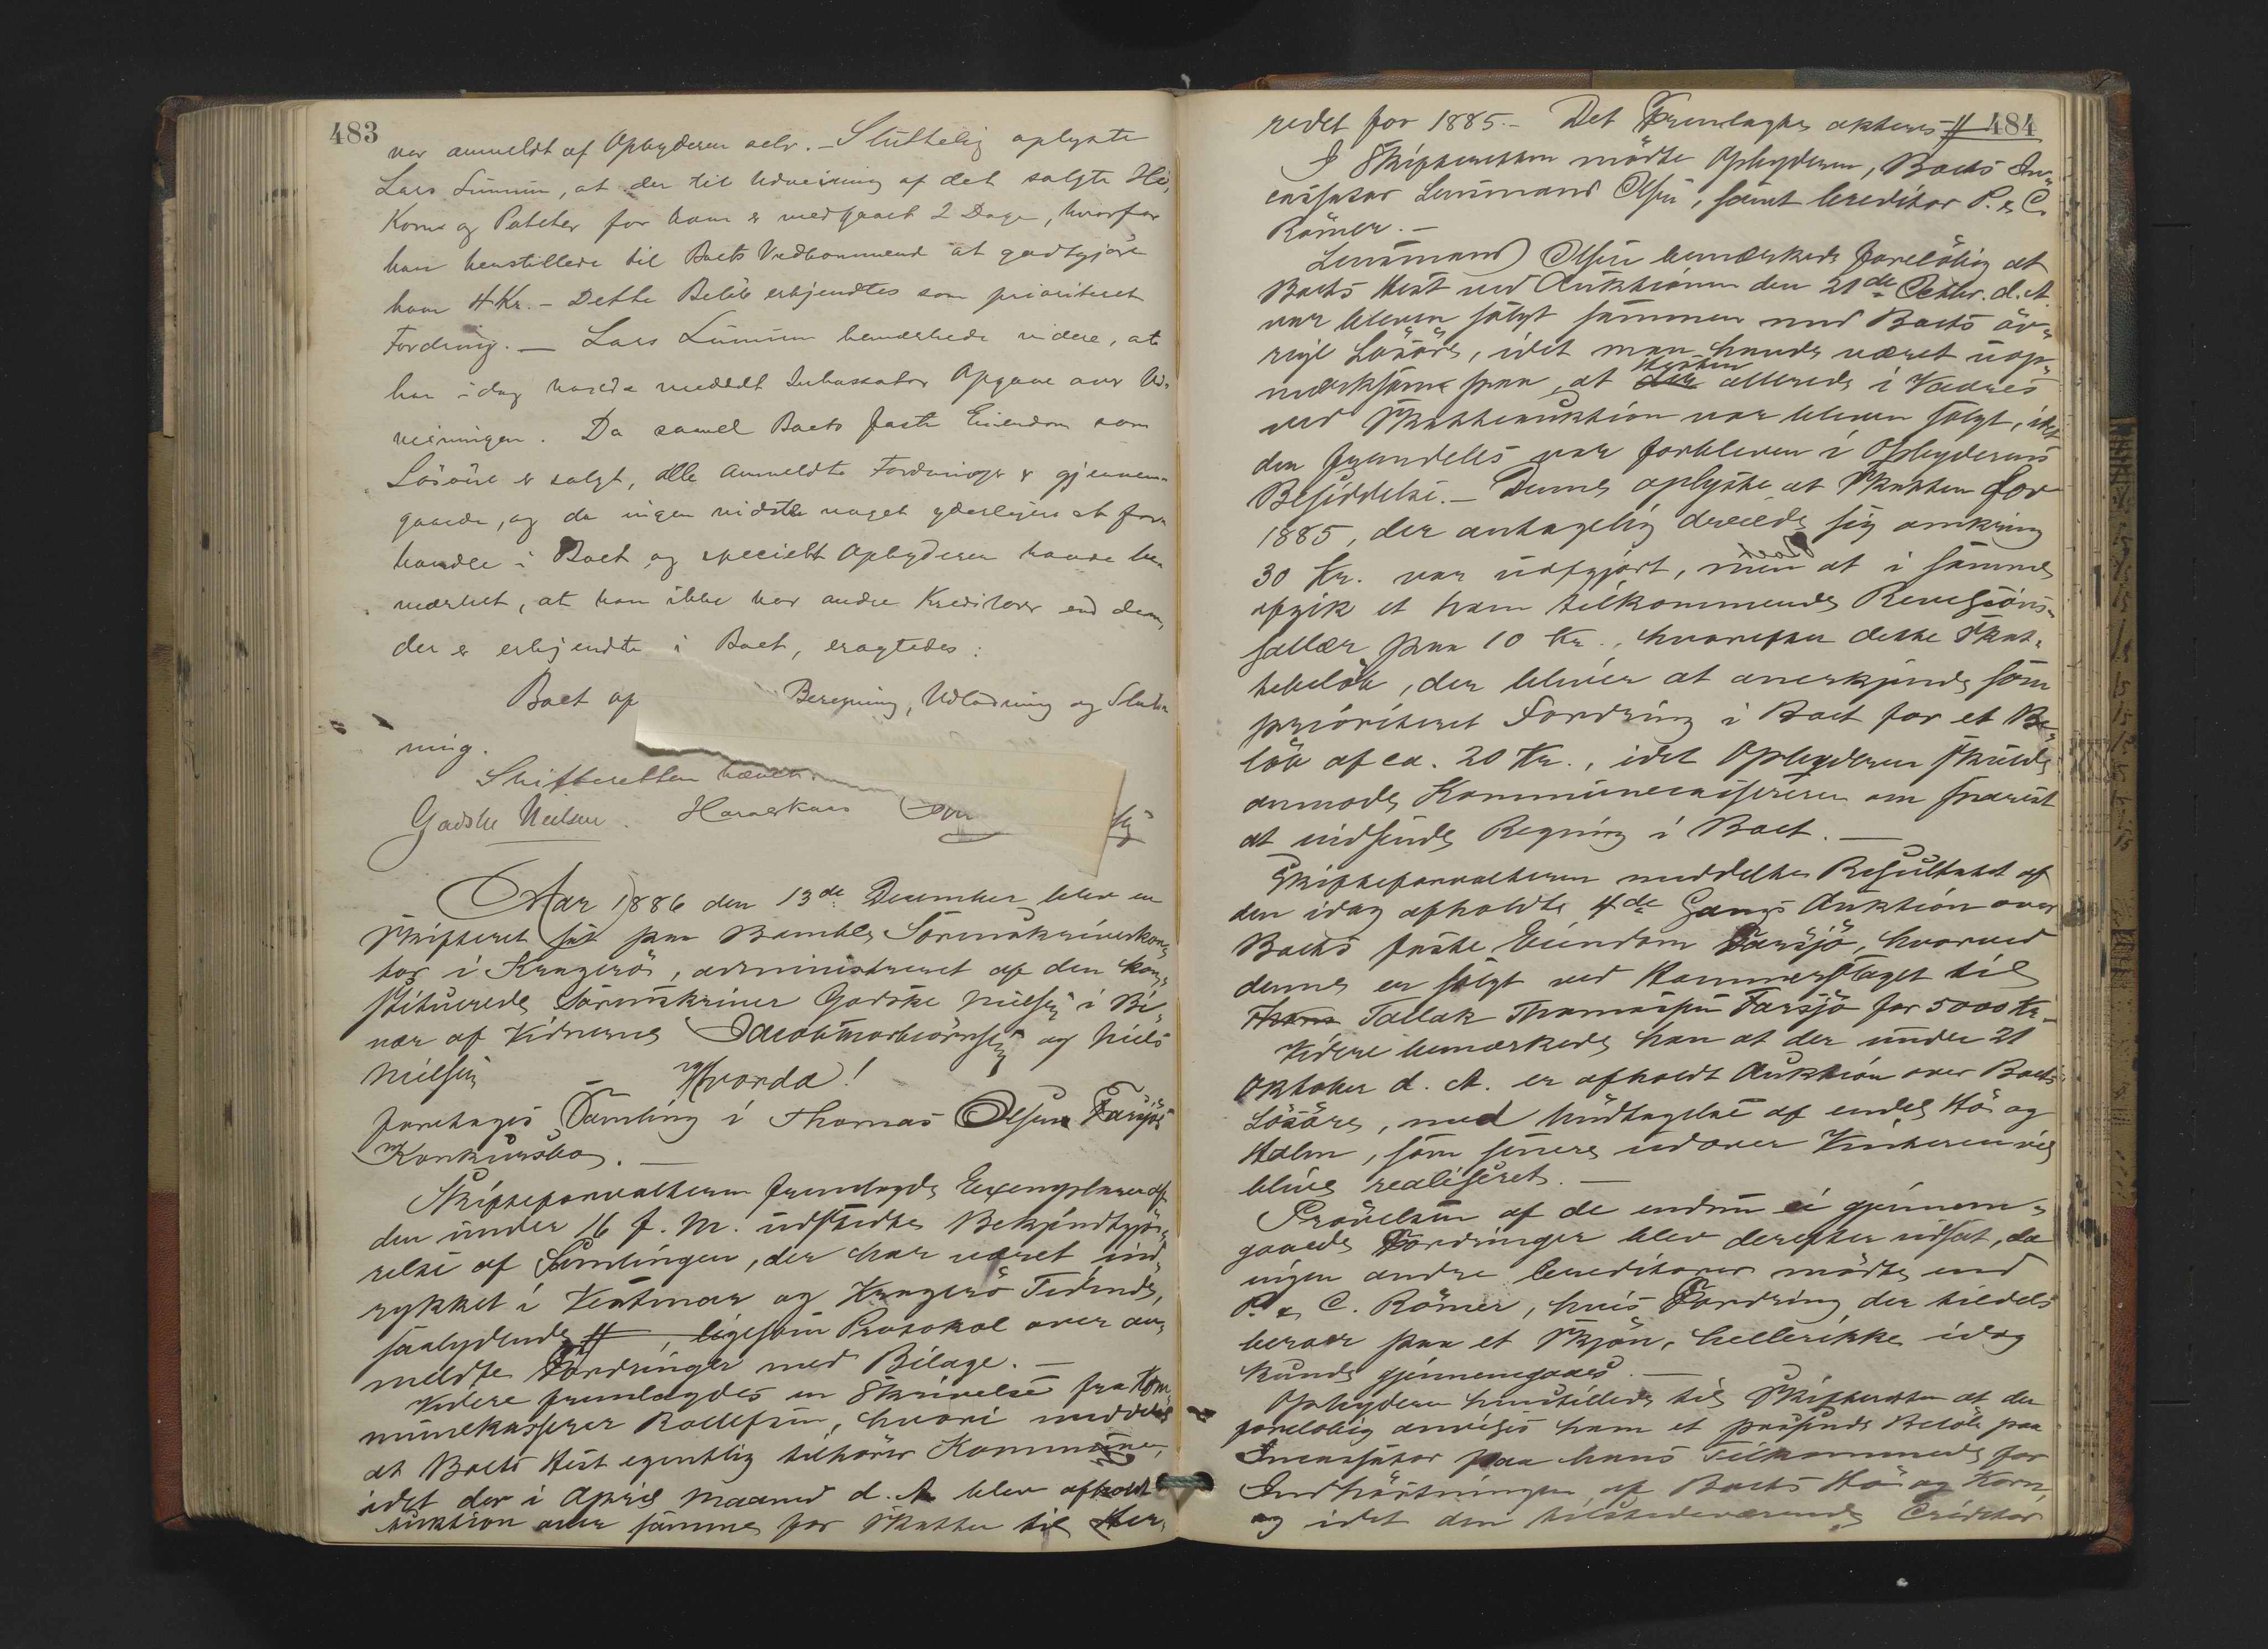 483
var anmeldt af Opbyderen selv. – Sluttelig oplyste
Lars Lunum, at der til Udveining af det solgte Hö,
Korn og Poteter for ham er medgaaet 2 Dage, hvorfor
han henstillede til Boets Vedkommende at godtgjöre
ham 4 Kr. – Dette Belöb erkjendtes som prioriteret
Fordring. — Lars Lunum bemærkede videre, at
han idag havde meddelt Inkassator Opgave over Ud-
veiningen. Da saavel Boets faste Eiendom som
Lösöre er solgt, alle anmeldte Fordringer er gjennem-
gaaede, og da ingen vidste noget yderligere at for-
handle i Boet og specielt Opbyderen havde be-
mærket, at han ikke har andre Kreditorer end dem,
der er erkjendte i Boet, eragtedes:
Boet op Beregning, Udlodning og Slut-
ning.
Skifteretten hævet.
Godske Nielsen. Haraldsen
Aar 1886 den 13de December blev en
Skifteret sat paa Bamble Sorenskriverkon-
tor i Kragerö, administreret af den kon-
stituerede Sorenskriver Godske Nielsen i Bi-
vær af Vidnerne Jacob Torbjörnsen og Niels
Nielsen
Hvorda!
foretoges Samling i Thomas Olsen Farsjös
Konkursbo. —
Skifteforvalteren fremlagde Exemplarer af
den under 16 f. M. udstedte Bekjendtgjö-
relse af Samlingen, der har været ind-
rykket i Vestmar og Kragerö Tidende,
saalydende ╫, ligesom Protokol over an-
meldte Fordringer med Bilage. —
Videre fremlagdes en Skrivelse fra Kom-
munekasserer Rollefsen, hvori meddeles
at Boets Hest egentlig tilhörer Kommune,
idet der i April Maaned d. A. blev afholdt
Auktion over samme for Skatter til Her-
484
redet for 1885. – Det Fremlagte akteres ╫
I Skifteretten mödte Opbyderen, Boets In-
cassator Lensmand Olsen, samt Creditor P. & C.
Römer. —
Lensmand Olsen bemærkede forelöbig at
Boets Hest ved Auktionen den 21de Octbr. d. A.
var bleven solgt sammen med Boets öv-
rige Lösöre, idet man havde været uop-
mærksom paa, at der Hesten allerede i Vaares
ved Skatteauktion var bleven solgt, idet
den fremdeles var forbleven i Opbyderens
Besiddelse. – Denne oplyste at Skatten for
1885, der antagelig dreiede sig omkring
30 Kr. var uopgjort, men at i samme
afgik et ham tilkommende Revisions-
sallær paa 10 Kr., hvorefter dette Skat-
tebelöb, der bliver at anerkjende som
prioriteret Fordring i Boet for et Be-
löb af ca. 20 Kr., idet Opbyderen skulde
anmode Kommunecassereren om snarest
at indsende Regning i Boet. —
Skifteforvalteren meddelte Resultatet af
den idag afholdte 4de Gangs Auktion over
Boets faste Eiendom Farsjö, hvorved
denne er solgt ved Hammerslaget til
Tallak Thomassen Farsjö for 5000 Kr. –
Videre bemærkede han at der under 21
Oktober d. A. er afholdt Auktion over Boets
Lösöre, med Undtagelse af endel Hö og
Halm, som senere udover Vinteren vil
blive realiseret. —
Prövelsen af de endnu ei gjennem-
gaaede Fordringer blev derefter udsat, da
ingen andre Creditorer mödte end
P. & C. Römer, hvis Fordring der tildels
beroer paa et Skjön, hellerikke idag
kunde gjennemgaaes. —
Opbyderen henstillede til Skifteretten at der
forelöbig anvises ham et passende Belöb paa
Incassator paa hans Tilkommende for
Indhöstningen af Boets Hö og Korn,
og idet den tilstedeværende Creditor